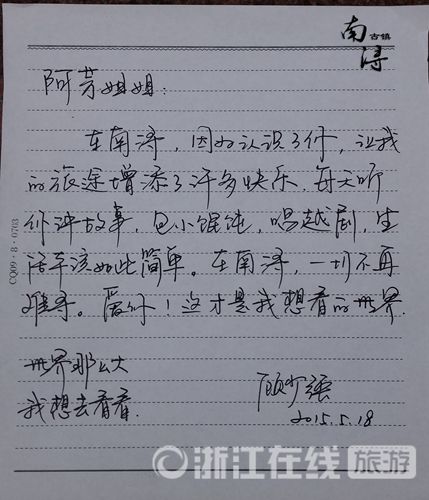 南浔
古镇
阿芳姐姐：
在南浔，因为认识了你，让我
的旅途增添了许多快乐，每天听
你讲故事，包小馄饨，唱越剧，生
活本该如此简单。在南浔，一切不再
难寻。爱你！这才是我想看的世界.
世界那么大
我想去看看.
顾少强
2015.5.18
CQ09·8·0703
浙江在线 旅游